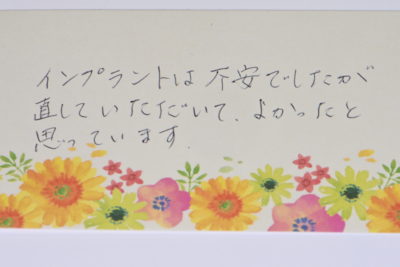 インプラントは不安でしたが
直していただいて、よかったと
思っています.